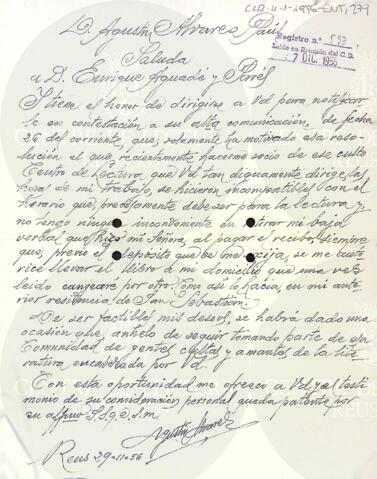 CLR-4-3-1956-ENT, 279
D. Agustín Alvarez Paúl
Registro n.º 593
Leído en Reunión del C.D.
7 DIC. 1956
Saluda
a D. Enrique Aguadé y Parés
Y tiene el honor de dirigirse a Vd para notificar
le en contestación a su atta comunicación, de fecha
26 del corriente, que; solamente ha motivado esa reso-
lución el que, recientemente hacerme socio de ese culto
Centro de Lectura, que Vd tan dignamente dirige, las
horas de mi trabajo, se hicieron incompatibles con el
horario que, precisamente debe ser para la lectura y
no tengo ningún inconveniente en retirar mi baja
verbal que hizo mi Señora, al pagar el recibo, siempre
que, previo el depósito que se me exija, se me auto
rice llevar el libro a mi domicilio que una vez
leido canjearé por otro. Como así lo hacía, en mi ante
rior residencia de San Sebastián.
De ser factibles mis deseos, se habrá dado una
ocasión que, anhelo de seguir tomando parte de esa
Comunidad de gentes cultas y amantes de la lite
ratura encabezada por Vd.
Con esta oportunidad me ofrezco a Vd y el testi
monio de su consideración personal queda patente por
su affmo S.S. q. e. s. m.
Agustín Alvarez
Reus 29-11-56
REUS